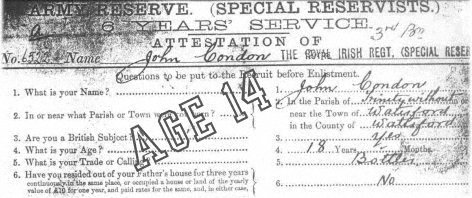 ARMY RESERVE. (SPECIAL RESERVISTS.)
6 YEARS' SERVICE. 3rd Bn
ATTESTATION OF
No. Name John Condon THE ROYAL IRISH REGT. (SPECIAL RES
Questions to be put to the Recruit before Enlistment.
1. What is your Name? 1. John Condon
2. In or near what Parish or Town were you born? 2. In the Parish of Trinity without
near the Town of Waterford
in the County of Waterford
3. Are you a British Subject 3. Yes
4. What is your Age? 4. 18 Years Months.
5. What is your Trade or Calling 5. Bottler
6. Have you resided out of your Father's house for three years 6. No
continuously in the same place, or occupied a house or land of the yearly
value of £10 for one year, and paid rates for the same, and, in either case,
AGE 14